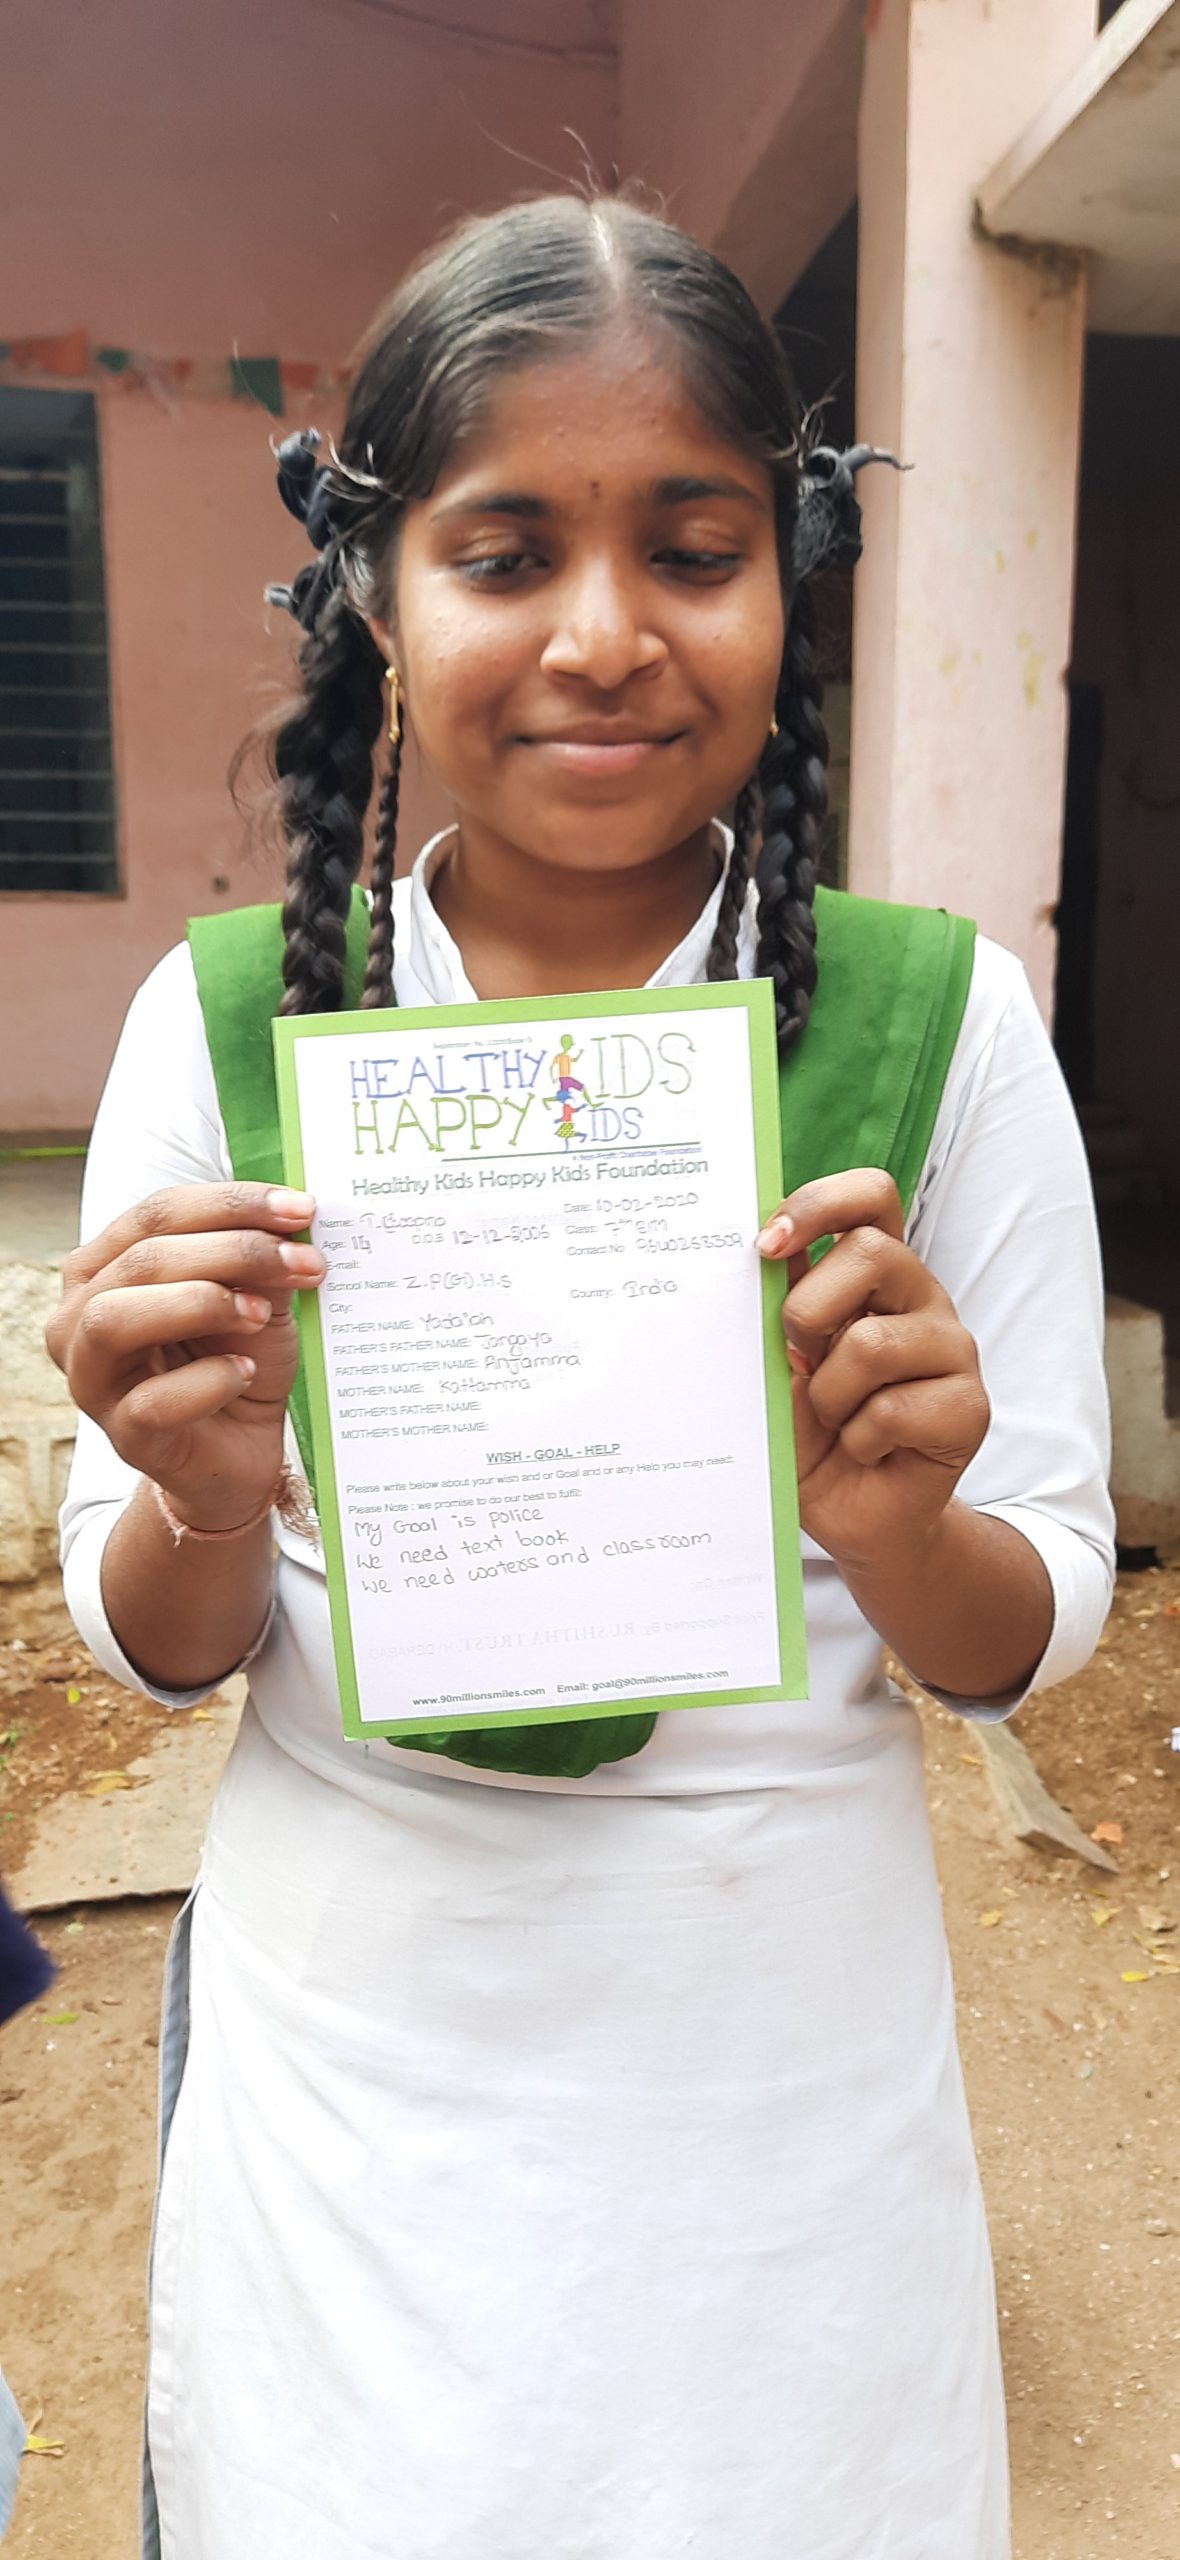 HEALTHY KIDS
HAPPY KIDS
A Non-Profit Charitable Foundation
Healthy Kids Happy Kids Foundation
Name: T. Date: 10-02-2020
Age: 14 D.O.B 12-12-2006 Class: 7th E/M
E-mail: Contact No 9640258309
School Name: Z.P(G).H.S
City: Country: India
FATHER NAME: Yadaiah
FATHER'S FATHER NAME: Jangaya
FATHER'S MOTHER NAME: Anjamma
MOTHER NAME: Kattamma
MOTHER'S FATHER NAME:
MOTHER'S MOTHER NAME:
WISH - GOAL - HELP
Please write below about your wish and or Goal and or any Help you may need:
Please Note : we promise to do our best to fulfil:
My Goal is police
We need text book
We need waters and classroom
www.90millionsmiles.com Email: goal@90millionsmiles.com